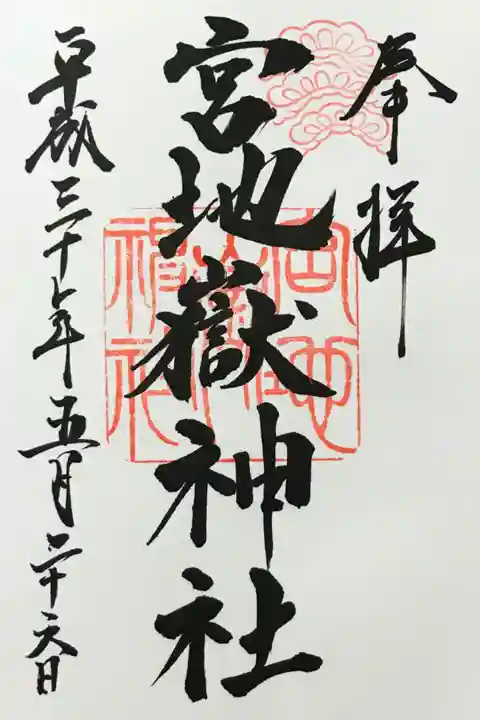 奉拝
宮地嶽神社
宮地嶽神社
平成三十年五月二十六日